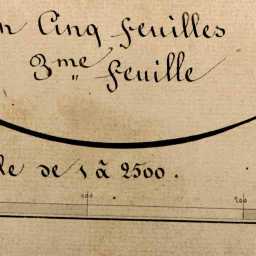 n Cinq feuilles
3me feuille
le de 1 à 2500.
100 200